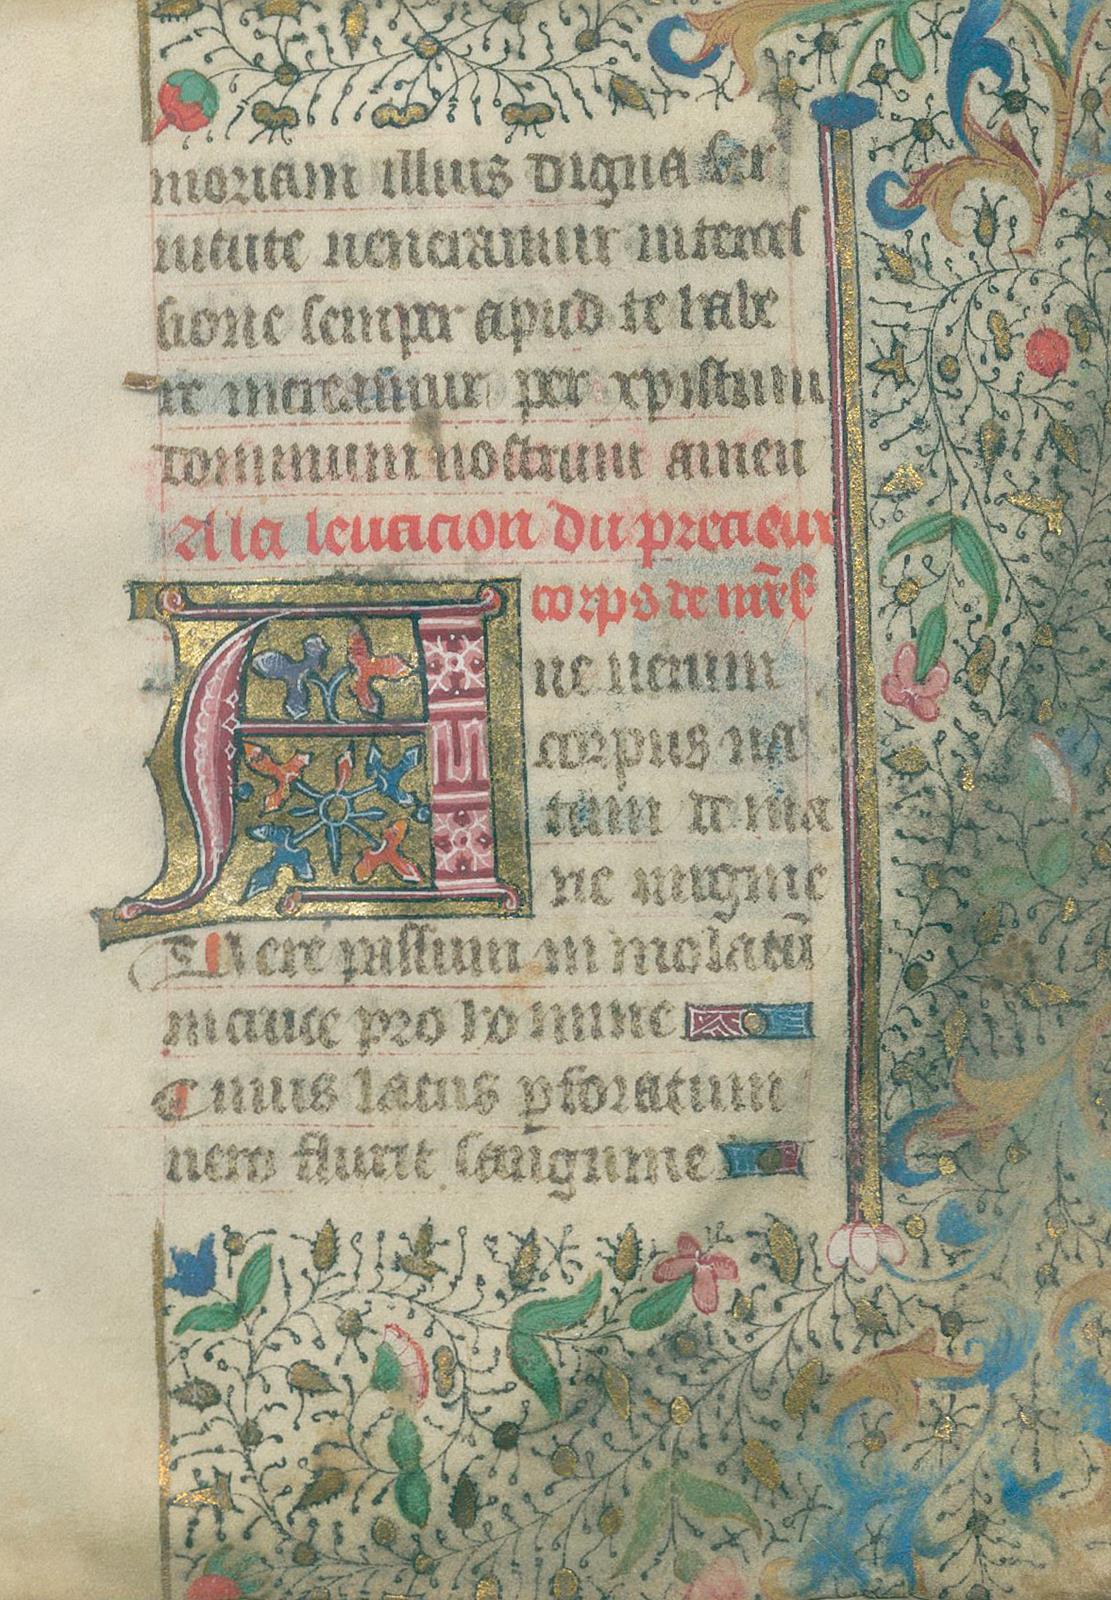 moriam illius digna ser
uitute ueneramur interces
sione semper apud te labe
re mereamur per xpistum
dominum nostrum amen
A la leuacion du precieux
corps de nr̃e s
ue uerum
corpus na
tum de ma
rie uirgine
Uere passum inmolatũ
in cruce pro homine
Cuius latus pforatum
uero fluxit sanguine